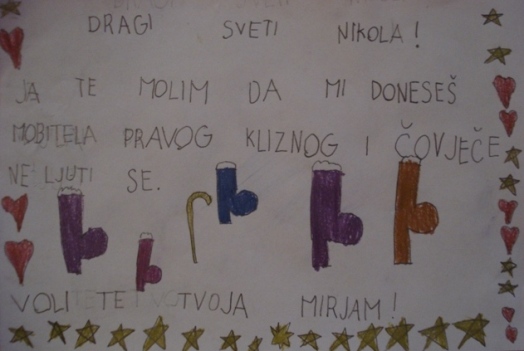 DRAGI SVETI NIKOLA!
JA TE MOLIM DA MI DONESEŠ
MOBITELA PRAVOG KLIZNOG I ČOVJEČE
NE LJUTI SE.
VOLI TE TVOJA MIRJAM!